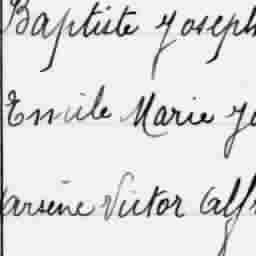 Baptiste Joseph
Emile Marie Jo
arsène Victor Alfr